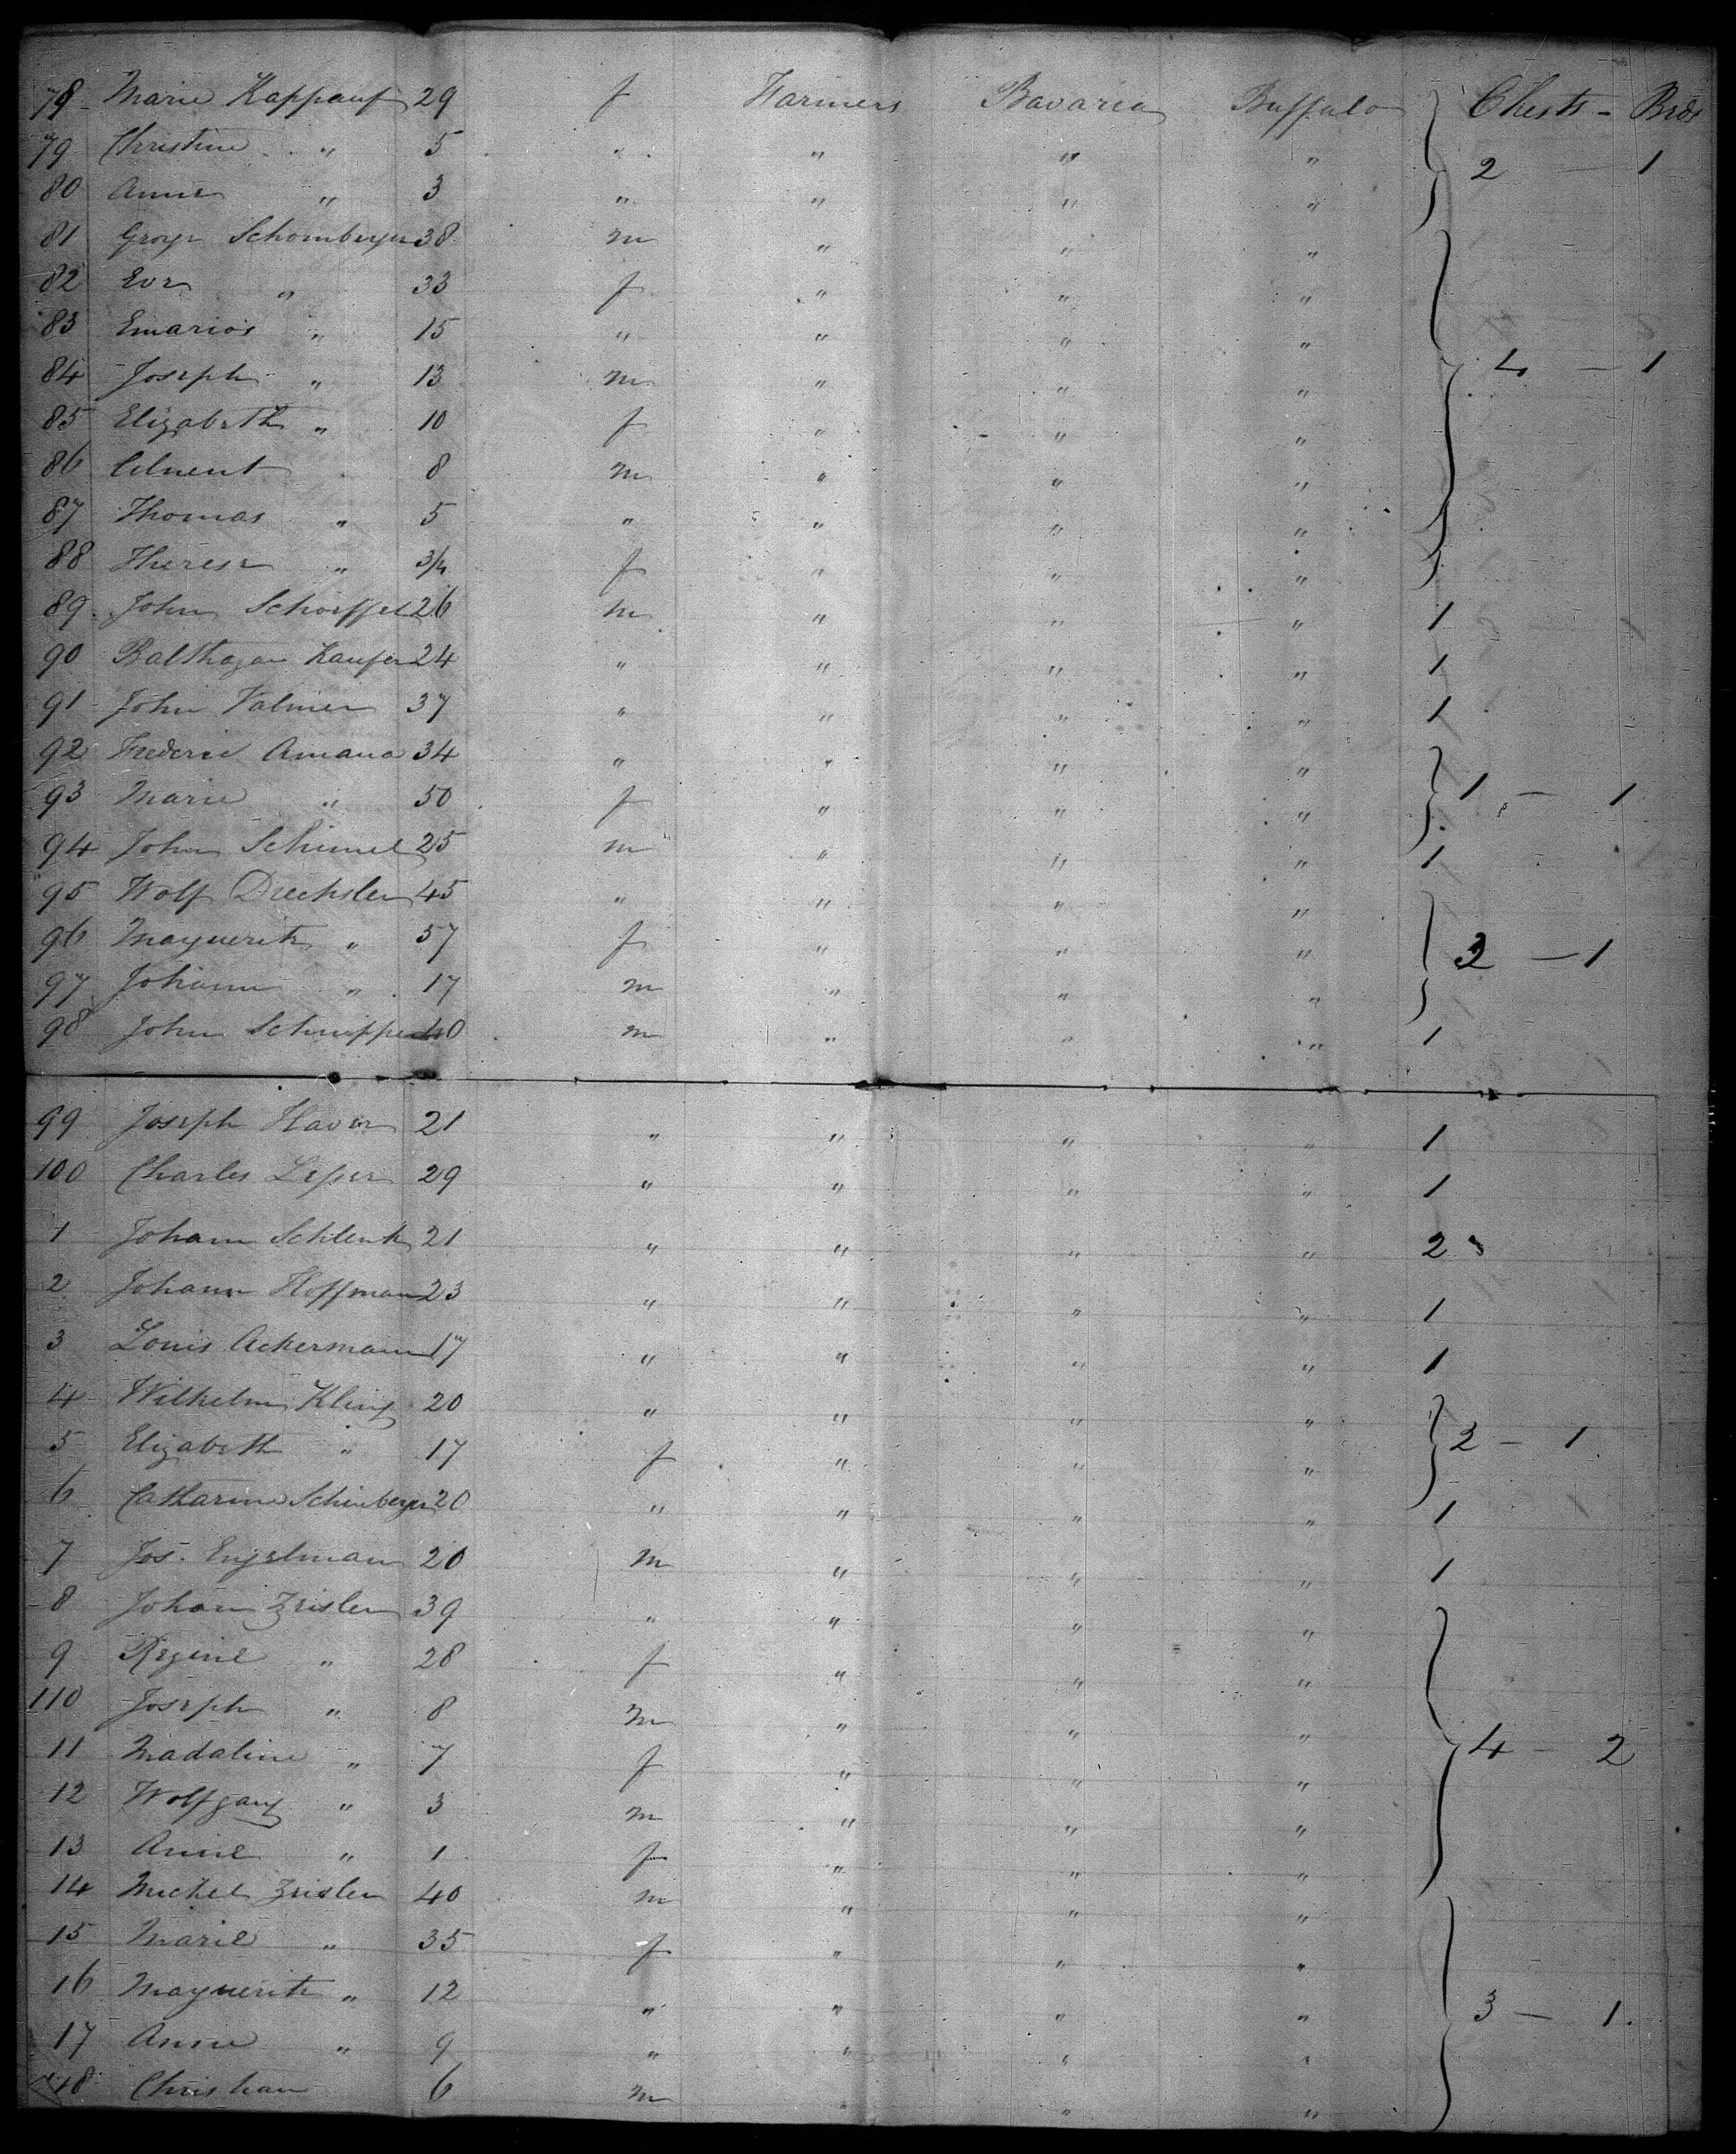 78 Marie Kappauf 29 f Farmers Bavaria Buffalo Chests - Beds
79 Christine " 5 " " " " 2 - 1
80 Anne " 3 " " " "
81 38 m " " "
82 Eva " 33 f " " "
83 " 15 " " " "
84 Joseph " 13 m " " " 4 - 1
85 Elizabeth " 10 f " " "
86 8 m " " "
87 Thomas " 5 " " " "
88 Therese " 3/4 f " " "
89 John Schoeffel 26 m " " " 1
90 Balthazar Kaufer 24 " " " " 1
91 John 37 " " " " 1
92 Frederic Amana 34 " " " "
93 Marie " 50 f " " " 1 - 1
94 John Schimel 25 m " " " 1
95 Wolf Drechsler 45 " " " "
96 Marguerite " 57 f " " " - 1
97 Johann " 17 m " " "
98 John 40 m " " " 1
99 Joseph Haver 21 " " " " 1
100 Charles 29 " " " " 1
1 Johann Schlenk 21 " " " " 2
2 Johann Hoffman 23 " " " " 1
3 Louis Ackermann 17 " " " " 1
4 Wilhelm Kling 20 " " " "
5 Elizabeth " 17 f " " " 2 - 1
6 Catharine 20 " " " " 1
7 Jos. Engelman 20 m " " " 1
8 Johann Zeisler 39 " " " "
9 Regine " 28 f " " "
110 Joseph " 8 m " " "
11 Madaline " 7 f " " " 4 - 2
12 Wolfgang " 3 m " " "
13 Anne " 1 f " " "
14 Michel Zeisler 40 m " " "
15 Marie " 35 f " " "
16 Marguerite " 12 " " " " 3 - 1.
17 Anne " 9 " " " "
118 Christian 6 m " "